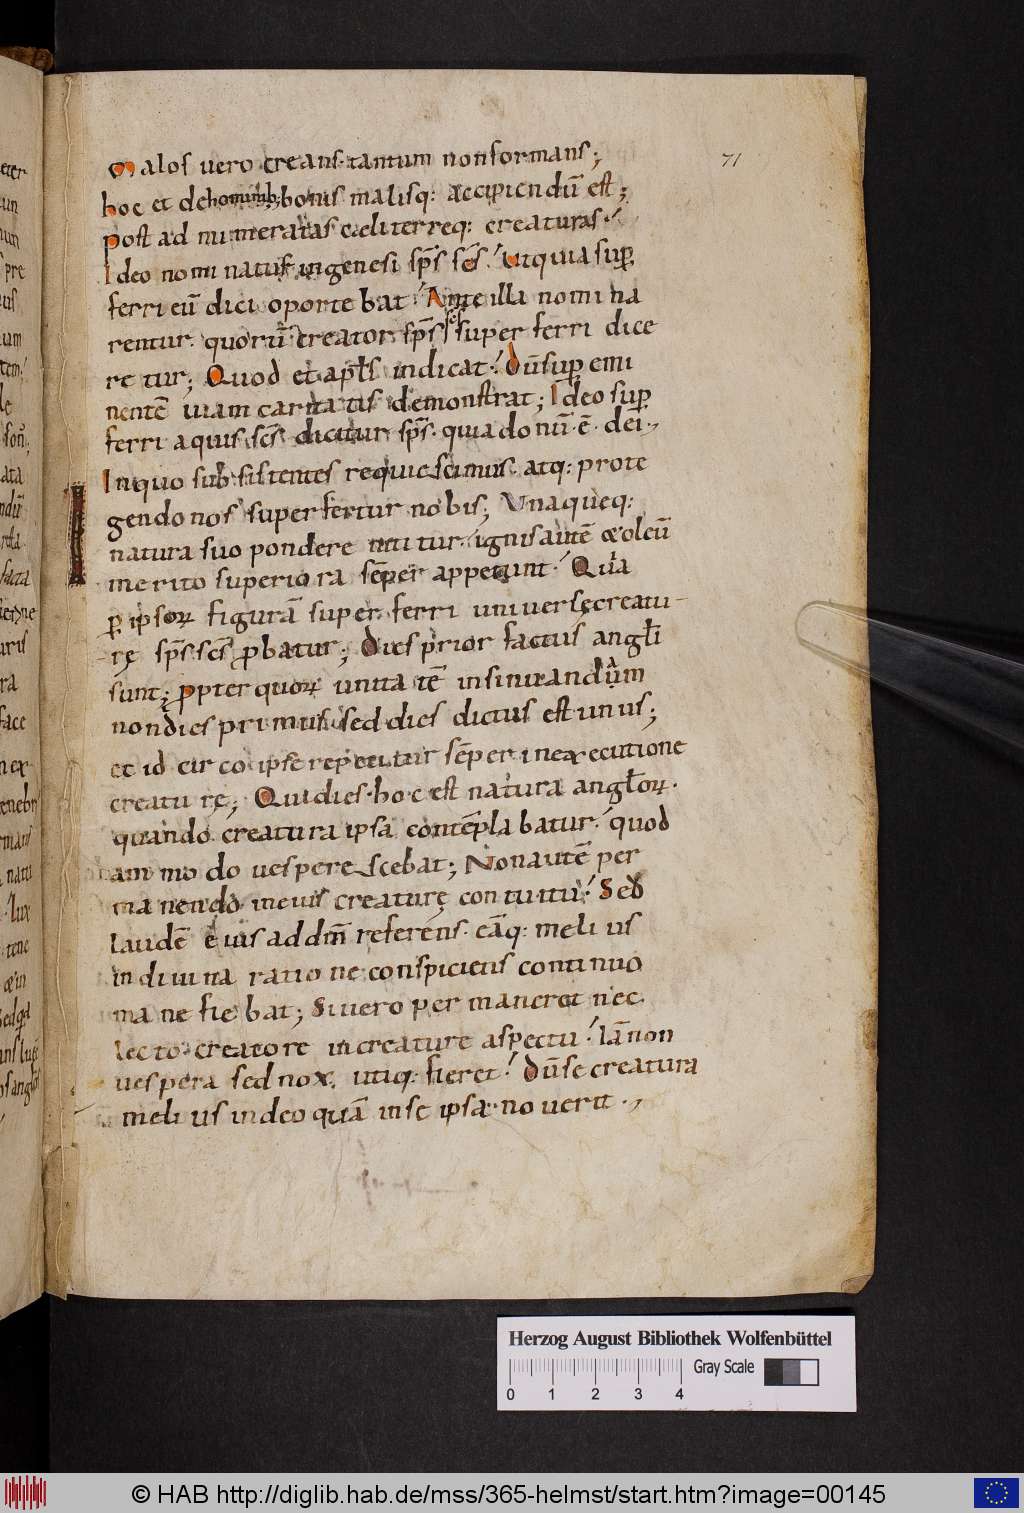 71
Malos vero creans tantum non formans;
hoc et de hominib; bonis malisq: accipiendū est;
post ad numeratas cæli terreq: creaturas.
Ideo nominatus in genesi sp̄s sc̄s. Ut quia sup̱
ferri eū dici oportebat. Ante illa nomina
rentur quorū creator sp̄s sc̄s super ferri dice
retur; Quod et apl̄s indicat. dū sup̱ emi
nentē uiam caritatis demonstrat; Ideo sup̱
ferri aquis sc̄s dicitur sp̄s. quia donū ē dei.,
In quo subsistentes requiescimus. atq: prote
gendo nos superfertur nobis; Unaqueq:
natura suo pondere nititur. ignis autē & oleū
merito superiora sēper appetunt. Quia
p̱ ipsoꝝ figurā super ferri universę creatu
rę sp̄s sc̄s ꝓbatur; dies prior factus angl̄i
sunt; ꝓpter quoꝝ unitatē insinuandam
non dies primus sed dies dictus est unus;
et id circo ipse repetitur sēper in exsecutione
creaturę; Qui dies. hoc est natura angl̄oꝝ.
quando creatura ipsa contēplabatur. quod
am modo uesperescebat; Non autē per
manendo in eius creaturę contuitu. Sed
laudē eius ad dm̄ referens. eāq: melius
in diuina ratione conspiciens continuo
mane fiebat; Si uero permaneret nec
lecto creatore in creature aspectu. Iā non
uespera sed nox utiq: fieret. dū se creatura
melius in deo quā in se ipsa. nouerit.,
Herzog August Bibliothek Wolfenbüttel
Gray Scale
0 1 2 3 4
© HAB http://diglib.hab.de/mss/365-helmst/start.htm?image=00145